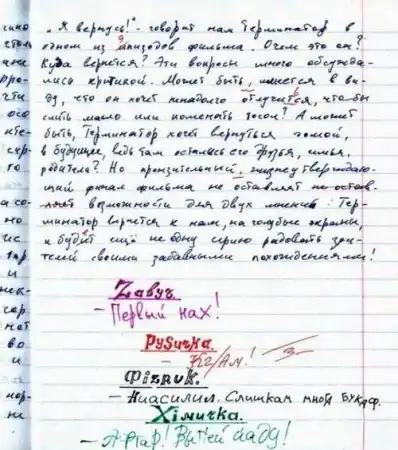 "Я вернусь!" - говорит нам Терминатор в
одном из эпизодов фильма. О чем это он?
Куда вернется? Эти вопросы много обсужда-
лись критикой. Может быть, имеется в ви-
ду, что он хочет ненадолго отлучится, что бы
слить масло или поменять тосол? А может
быть, Терминатор хочет вернуться домой,
в будущее, ведь там остались его друзья, семья,
родители? Но пронзительный, жизнеутверждаю-
щий финал фильма не оставляет не остав-
ляет возможности для двух мнений: Тер-
минатор вернется к нам, на голубые экраны,
и будит ещё не одну серию радовать зри-
телей своими забавными похождениями!
Zавуч
- Первый нах!
Руsичка.
- КГ/Ам! 3-
Фiзрuк.
- Ниасилил. Слишкам многа букаф.
Хiмичка.
- Афтар! Выпей йаду!